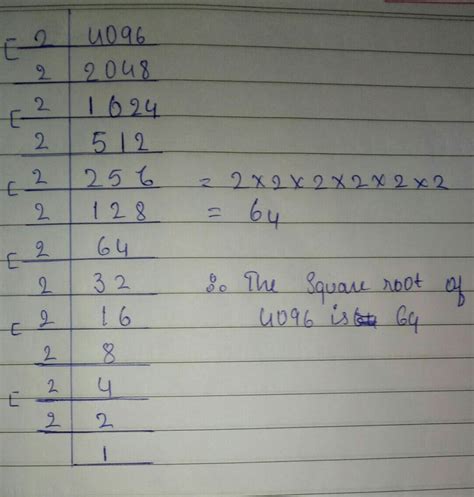 [ 2 | 4096
2 | 2048
[ 2 | 1624
2 | 512
[ 2 | 256 = 2×2×2×2×2×2
2 | 128 = 64
[ 2 | 64
2 | 32 ∴ The Square root of
[ 2 | 16 4096 is 64
2 | 8
[ 2 | 4
2 | 2
| 1